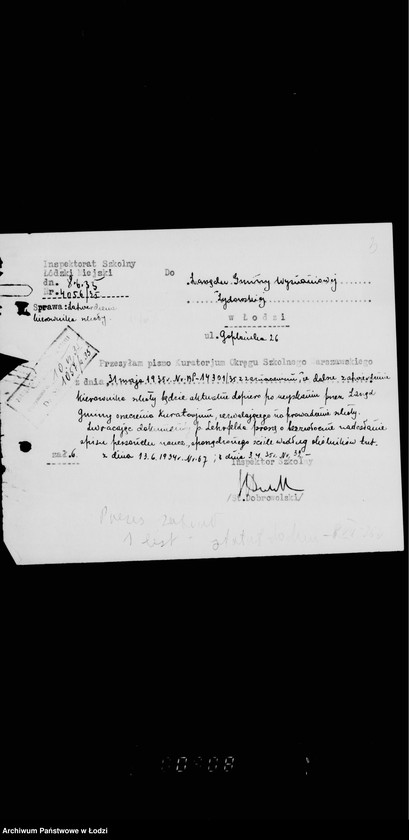 Inspektorat Szkolny
Łódzki Miejski
dn. 8.6.35
Nr. 4056/35
Sprawa: zatwierdzenie
kierownika szkoły.
Do Zarządu Gminy Wyznaniowej
Żydowskiej
w Łodzi
ul. Gdańska 26
Przesyłam pismo Kuratorjum Okręgu Szkolnego Warszawskiego
z dnia 31 maja 1935 r. Nr. BP-14301/35 z zaznaczeniem, że dalsze zatwierdzenie
kierownika szkoły będzie aktualne dopiero po uzyskaniu przez Zarząd
Gminy orzeczenia Kuratorjum, zezwalającego na prowadzenie szkoły.
Zwracając dokumenty p. Lehrfelda proszę o bezzwłoczne nadesłanie
spisu personelu naucz., sporządzonego ściśle według okólników tut.
z dnia 13.6.1934 r. Nr. 67 i z dnia 3.4.35 r. Nr. 32
zał. 6.
Inspektor Szkolny
/St. Dobrowolski/
1 list
00808
Archiwum Państwowe w Łodzi